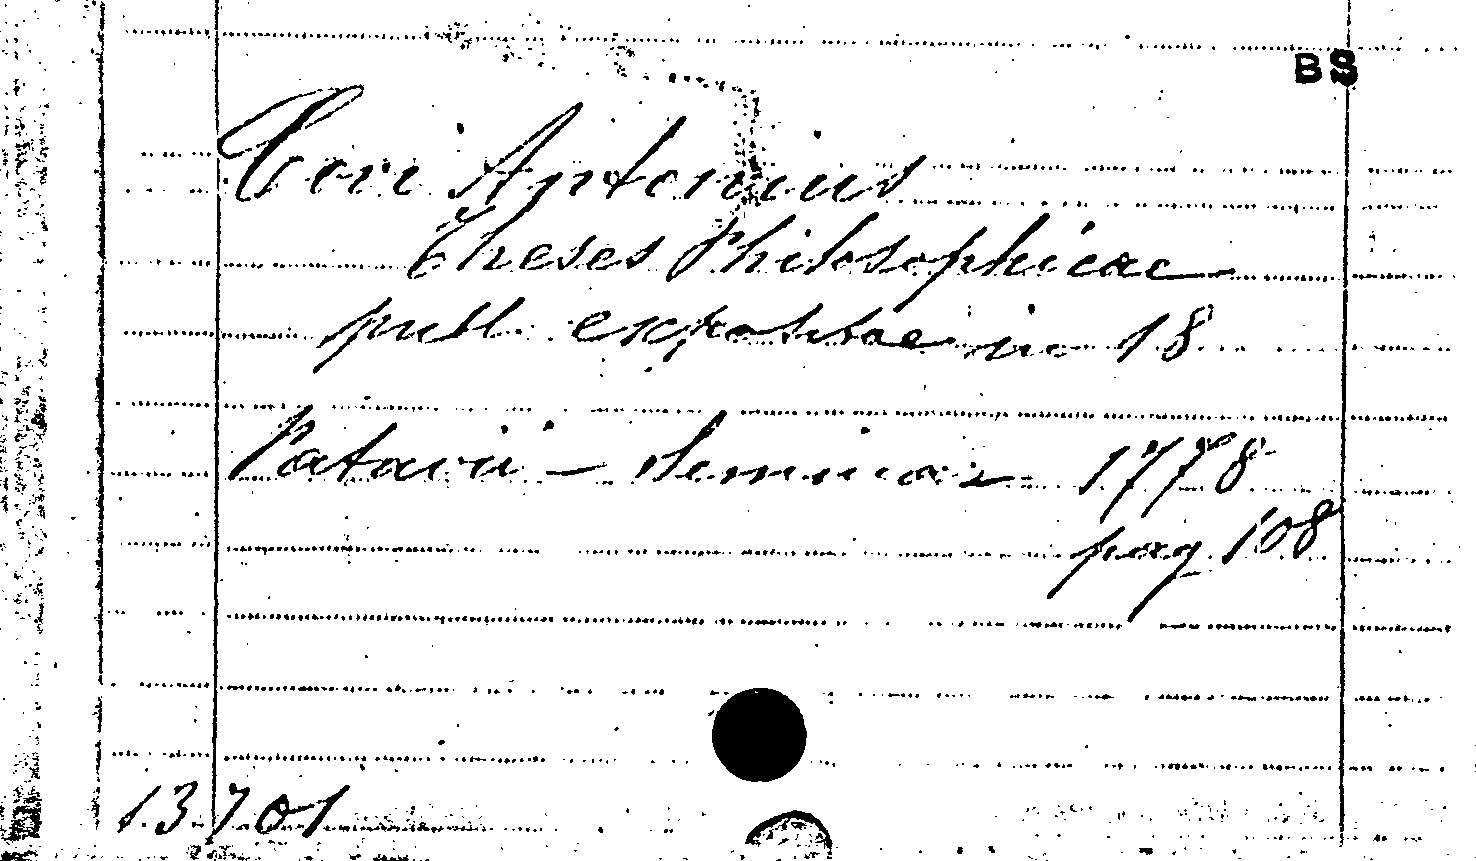 BS
Tori Antonius
Theses Philosophicae
publ. expositae in 18
Patavii - Seminar 1778
pag 108
13701